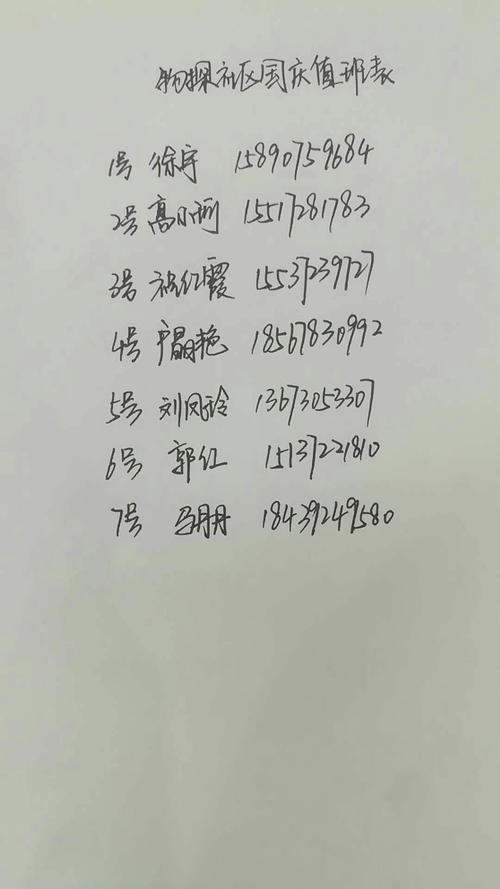 物探社区国庆值班表
1号 徐宇 15890759684
2号 高小利 15517281783
3号 红霞 15537239727
4号 户晶艳 18567830992
5号 刘凤玲 13673053307
6号 郭红 15137221810
7号 马丹丹 18439249580